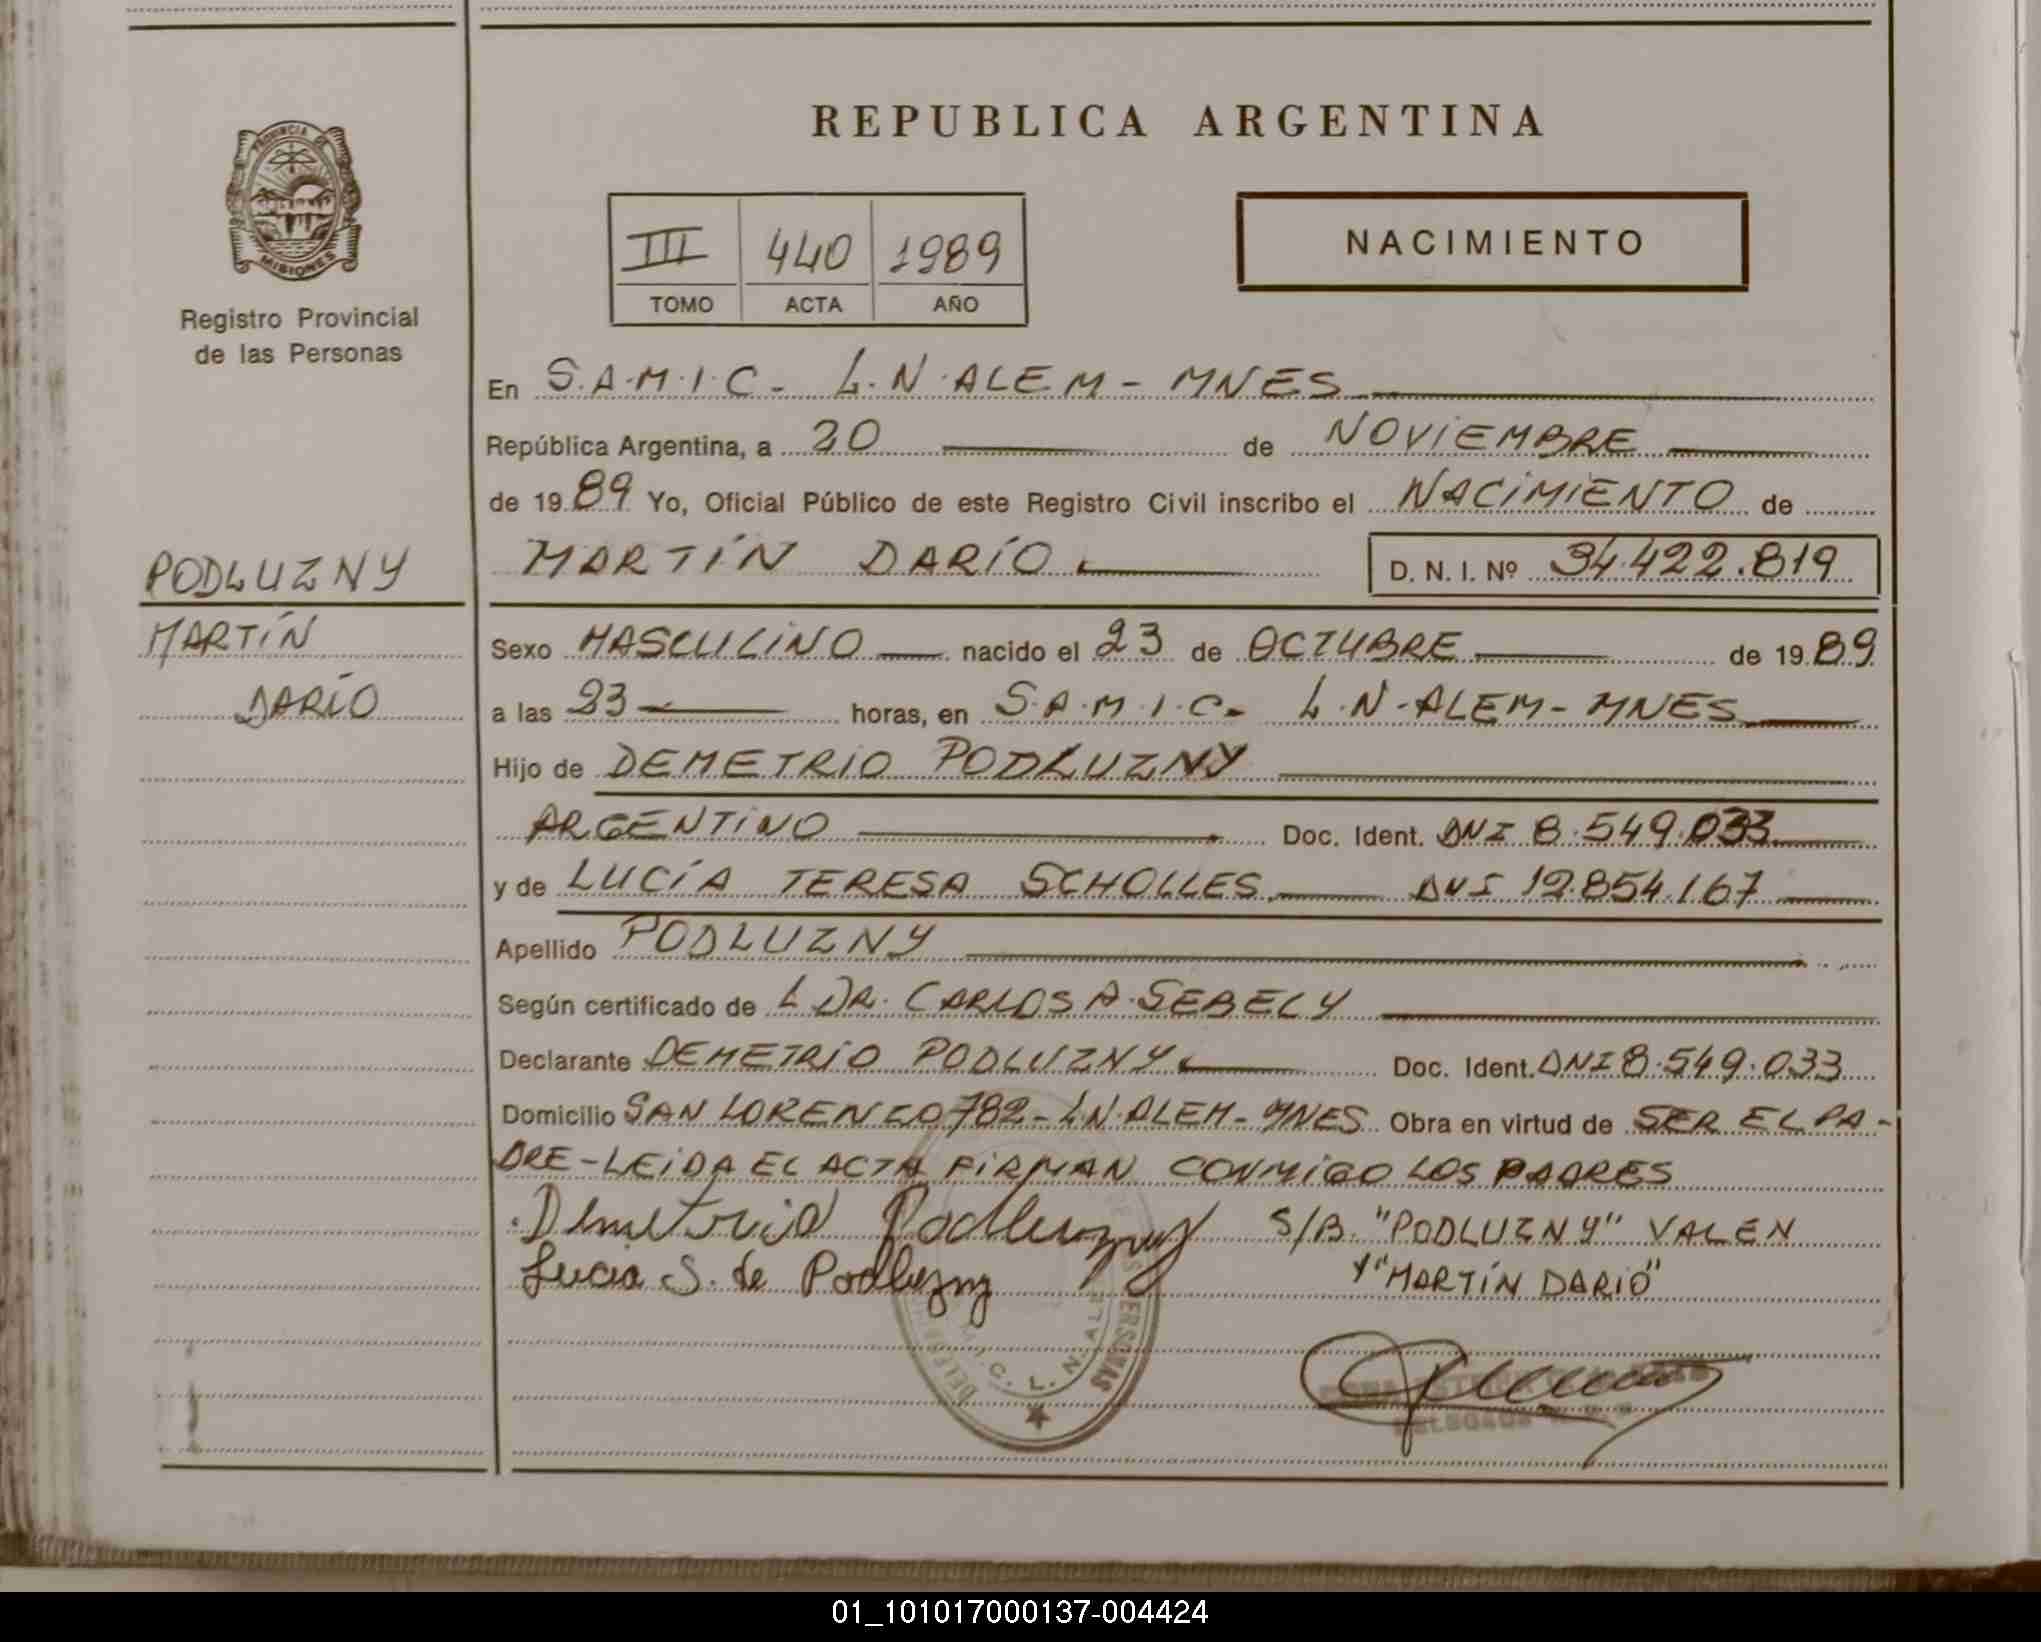 REPUBLICA ARGENTINA
PROVINCIA DE
MISIONES
Registro Provincial
de las Personas
III 440 1989
TOMO ACTA AÑO
NACIMIENTO
En S.A.M.I.C - L.N.ALEM - MNES
República Argentina, a 20 de NOVIEMBRE
de 1989 Yo, Oficial Público de este Registro Civil inscribo el NACIMIENTO de
MARTÍN DARÍO D. N. I. Nº 34.422.819
PODLUZNY
MARTÍN
DARÍO
Sexo MASCULINO nacido el 23 de OCTUBRE de 1989
a las 23 horas, en S.A.M.I.C - L.N-ALEM - MNES
Hijo de DEMETRIO PODLUZNY
ARGENTINO Doc. Ident. DNI 8.549.033
y de LUCÍA TERESA SCHOLLES DNI 12.854.167
Apellido PODLUZNY
Según certificado de L DR. CARLOS A. SEBELY
Declarante DEMETRIO PODLUZNY Doc. Ident. DNI 8.549.033
Domicilio SAN LORENZO 782 - L.N.ALEM - MNES Obra en virtud de SER EL PA-
DRE - LEIDA EL ACTA FIRMAN CONMIGO LOS PADRES
Demetrio Podluzny S/B. "PODLUZNY" VALEN
Lucia S. de Podluzny Y "MARTÍN DARIO"
PERSONAS
L. N. AL
DELEGADA
01_101017000137-004424